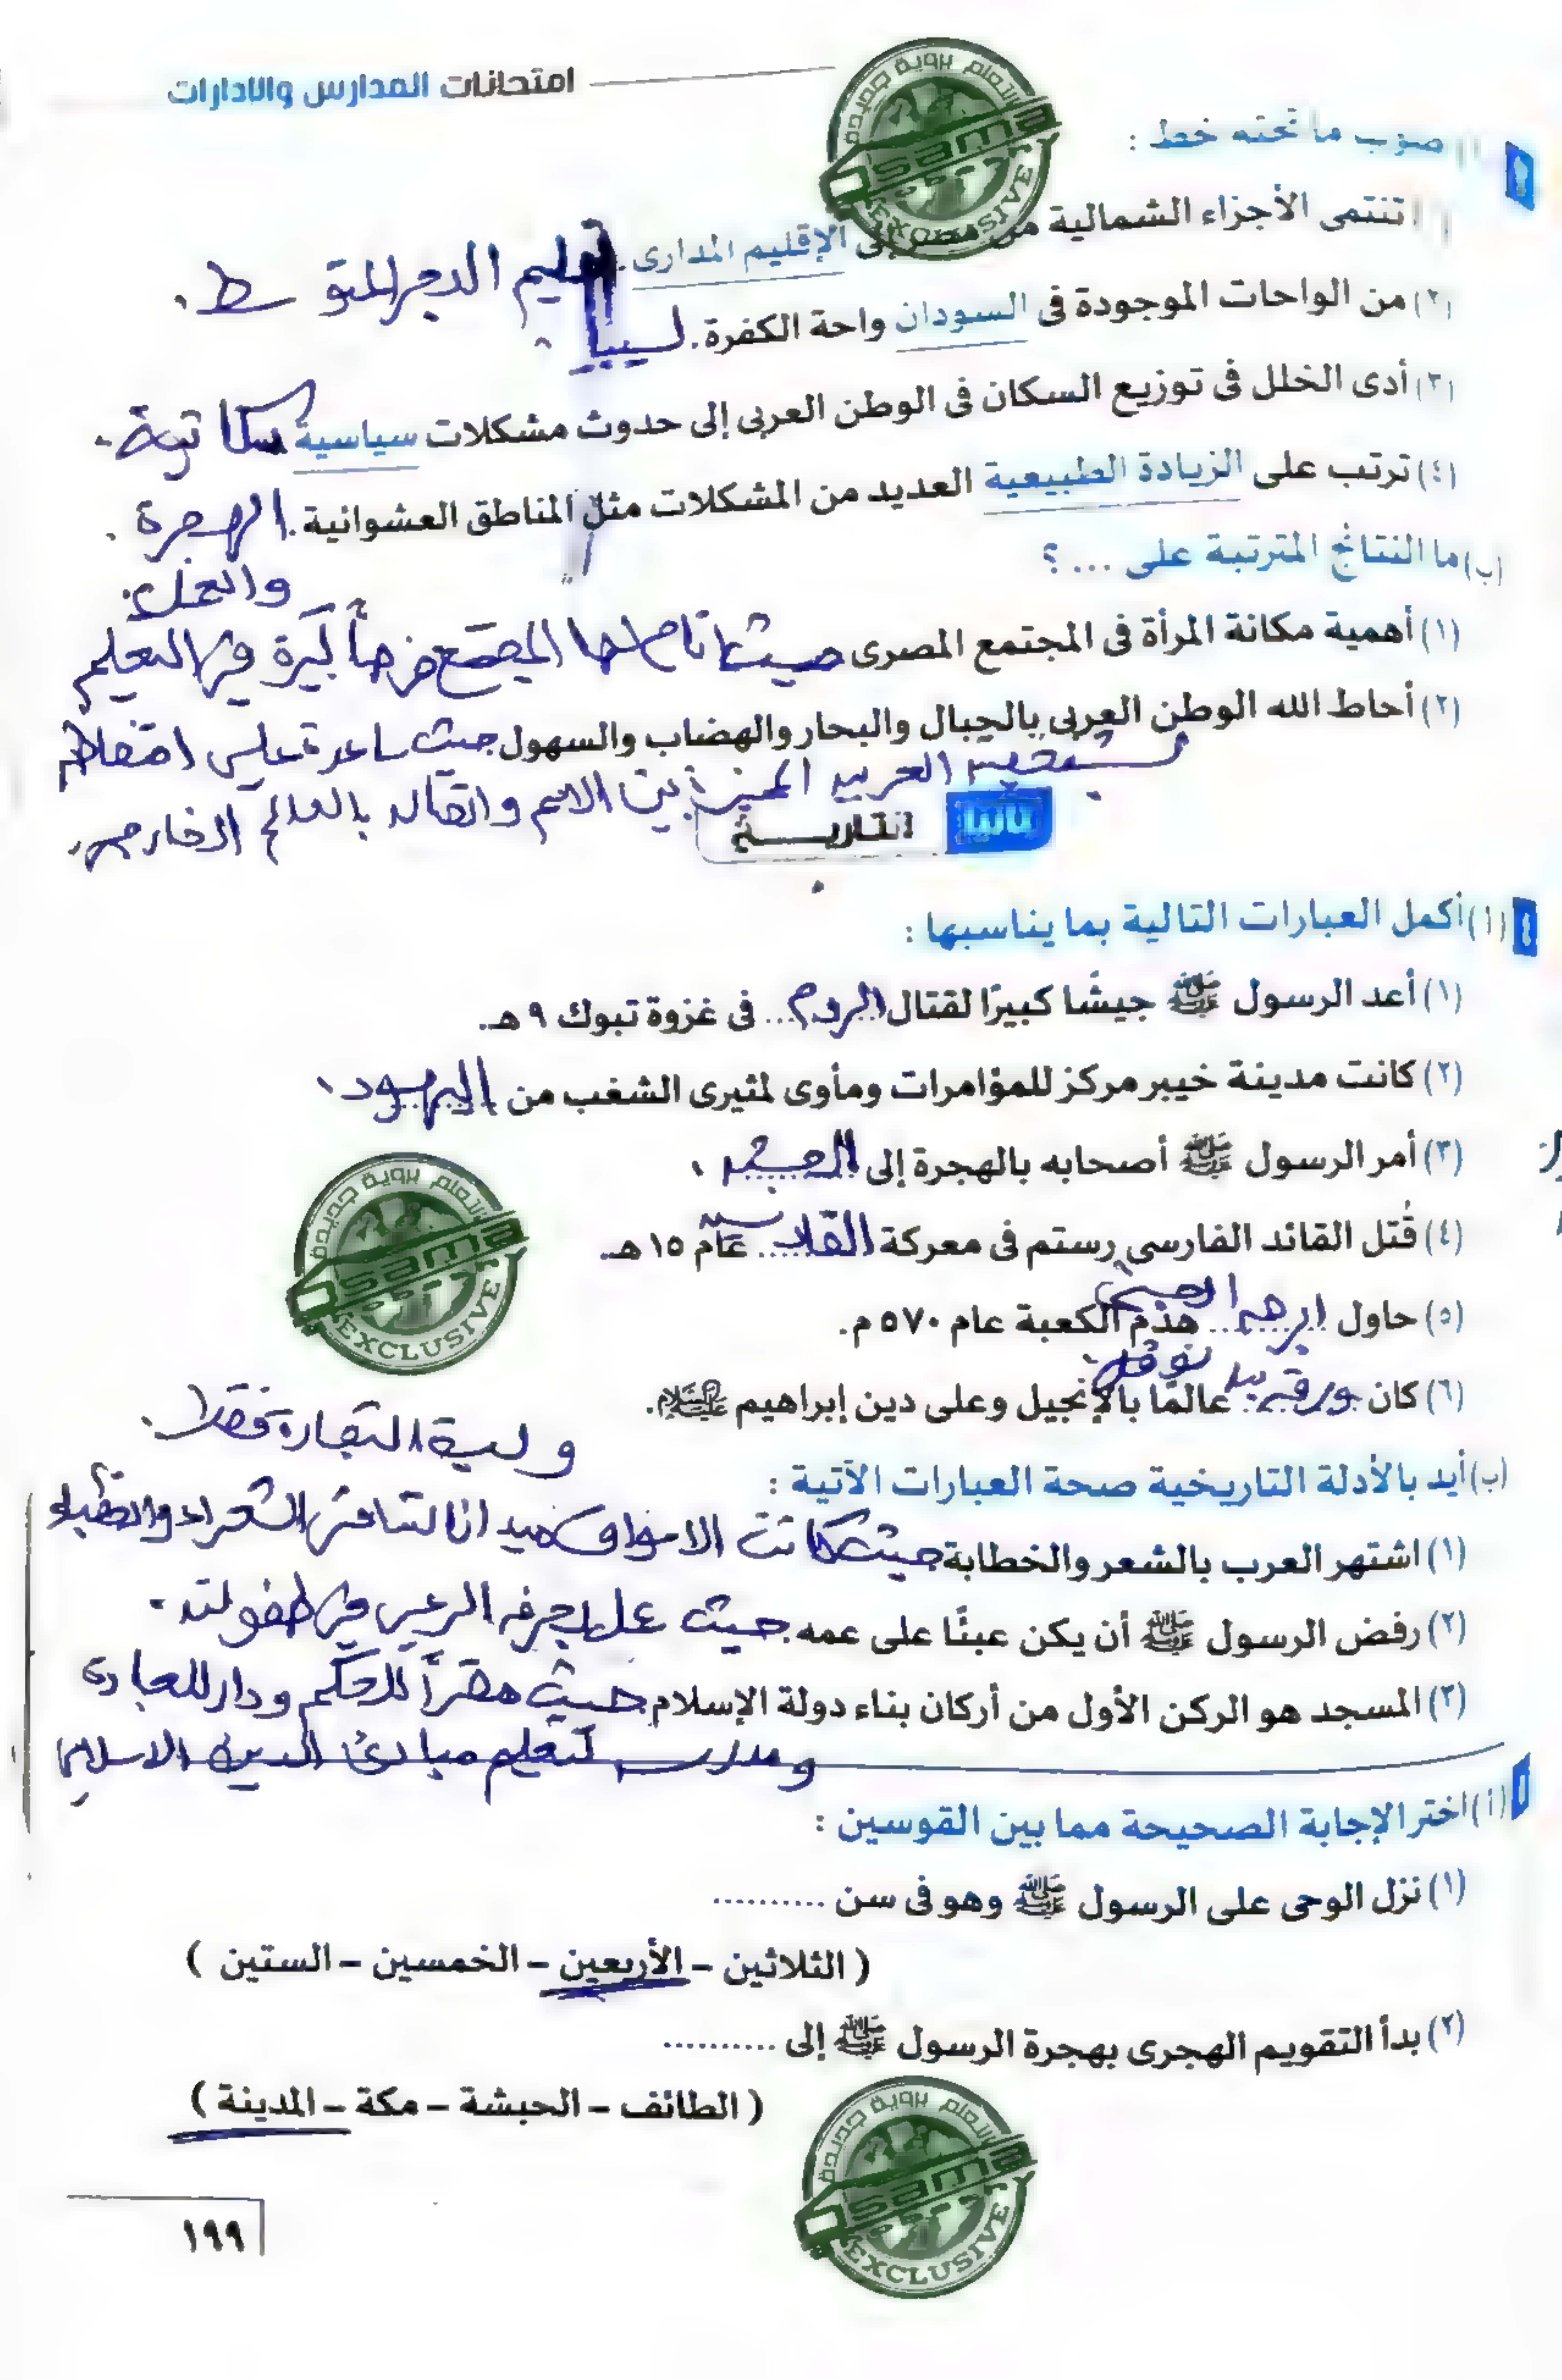 امتحانات المدارس والادارات
(أ) صوب ما تحته خط :
(١) تنتمى الأجزاء الشمالية من مصر إلى الإقليم المدارى. إقليم البحر المتوسط.
(٢) من الواحات الموجودة فى السودان واحة الكفرة. ليبيا
(٣) أدى الخلل فى توزيع السكان فى الوطن العربى إلى حدوث مشكلات سياسية سكانية.
(٤) ترتب على الزيادة الطبيعية العديد من المشكلات مثل المناطق العشوائية. الهجرة.
(ب) ما النتائج المترتبة على ... ؟
والعمل.
(١) أهمية مكانة المرأة فى المجتمع المصرى حيث أتاح لها المجتمع فرصاً كبيرة فى التعليم
(٢) أحاط الله الوطن العربى بالجبال والبحار والهضاب والسهول حيث ساعدة على احتفاظه
العربية المميزة بين الامم واتصاله بالعالم الخارجى.
ثانيا التاريخ
(أ) أكمل العبارات التالية بما يناسبها :
(١) أعد الرسول ﷺ جيشًا كبيرًا لقتال الروم... فى غزوة تبوك ٩ هـ.
(٢) كانت مدينة خيبر مركز للمؤامرات ومأوى لمثيرى الشغب من اليهود.
(٣) أمر الرسول ﷺ أصحابه بالهجرة إلى الحبشة.
(٤) قُتل القائد الفارسى رستم فى معركة القادسية... عام ١٥ هـ.
(٥) حاول ابرهة الحبشى... هدم الكعبة عام ٥٧٠ م.
(٦) كان ورقة بن نوفل عالمًا بالإنجيل وعلى دين إبراهيم عليه السلام.
وليسة التجارة فقط.
(ب) أيد بالأدلة التاريخية صحة العبارات الآتية :
(١) اشتهر العرب بالشعر والخطابة حيث كانت الاسواق ميدانا لتنافس الشعراء والخطباء
(٢) رفض الرسول ﷺ أن يكن عبئًا على عمه. حيث عمل بحرفه الرعى فى طفولته.
(٣) المسجد هو الركن الأول من أركان بناء دولة الإسلام. حيث مقراً للحكم ودار للعبادة
ومدرسه لتعليم مبادئ الدين الاسلامى
(أ) اختر الإجابة الصحيحة مما بين القوسين :
(١) نزل الوحى على الرسول ﷺ وهو فى سن ..........
( الثلاثين – الأربعين – الخمسين – الستين )
(٢) بدأ التقويم الهجرى بهجرة الرسول ﷺ إلى ..........
( الطائف – الحبشة – مكة – المدينة )
١٩٩
التعلم برؤية جديدة
Osama
EXCLUSIVE